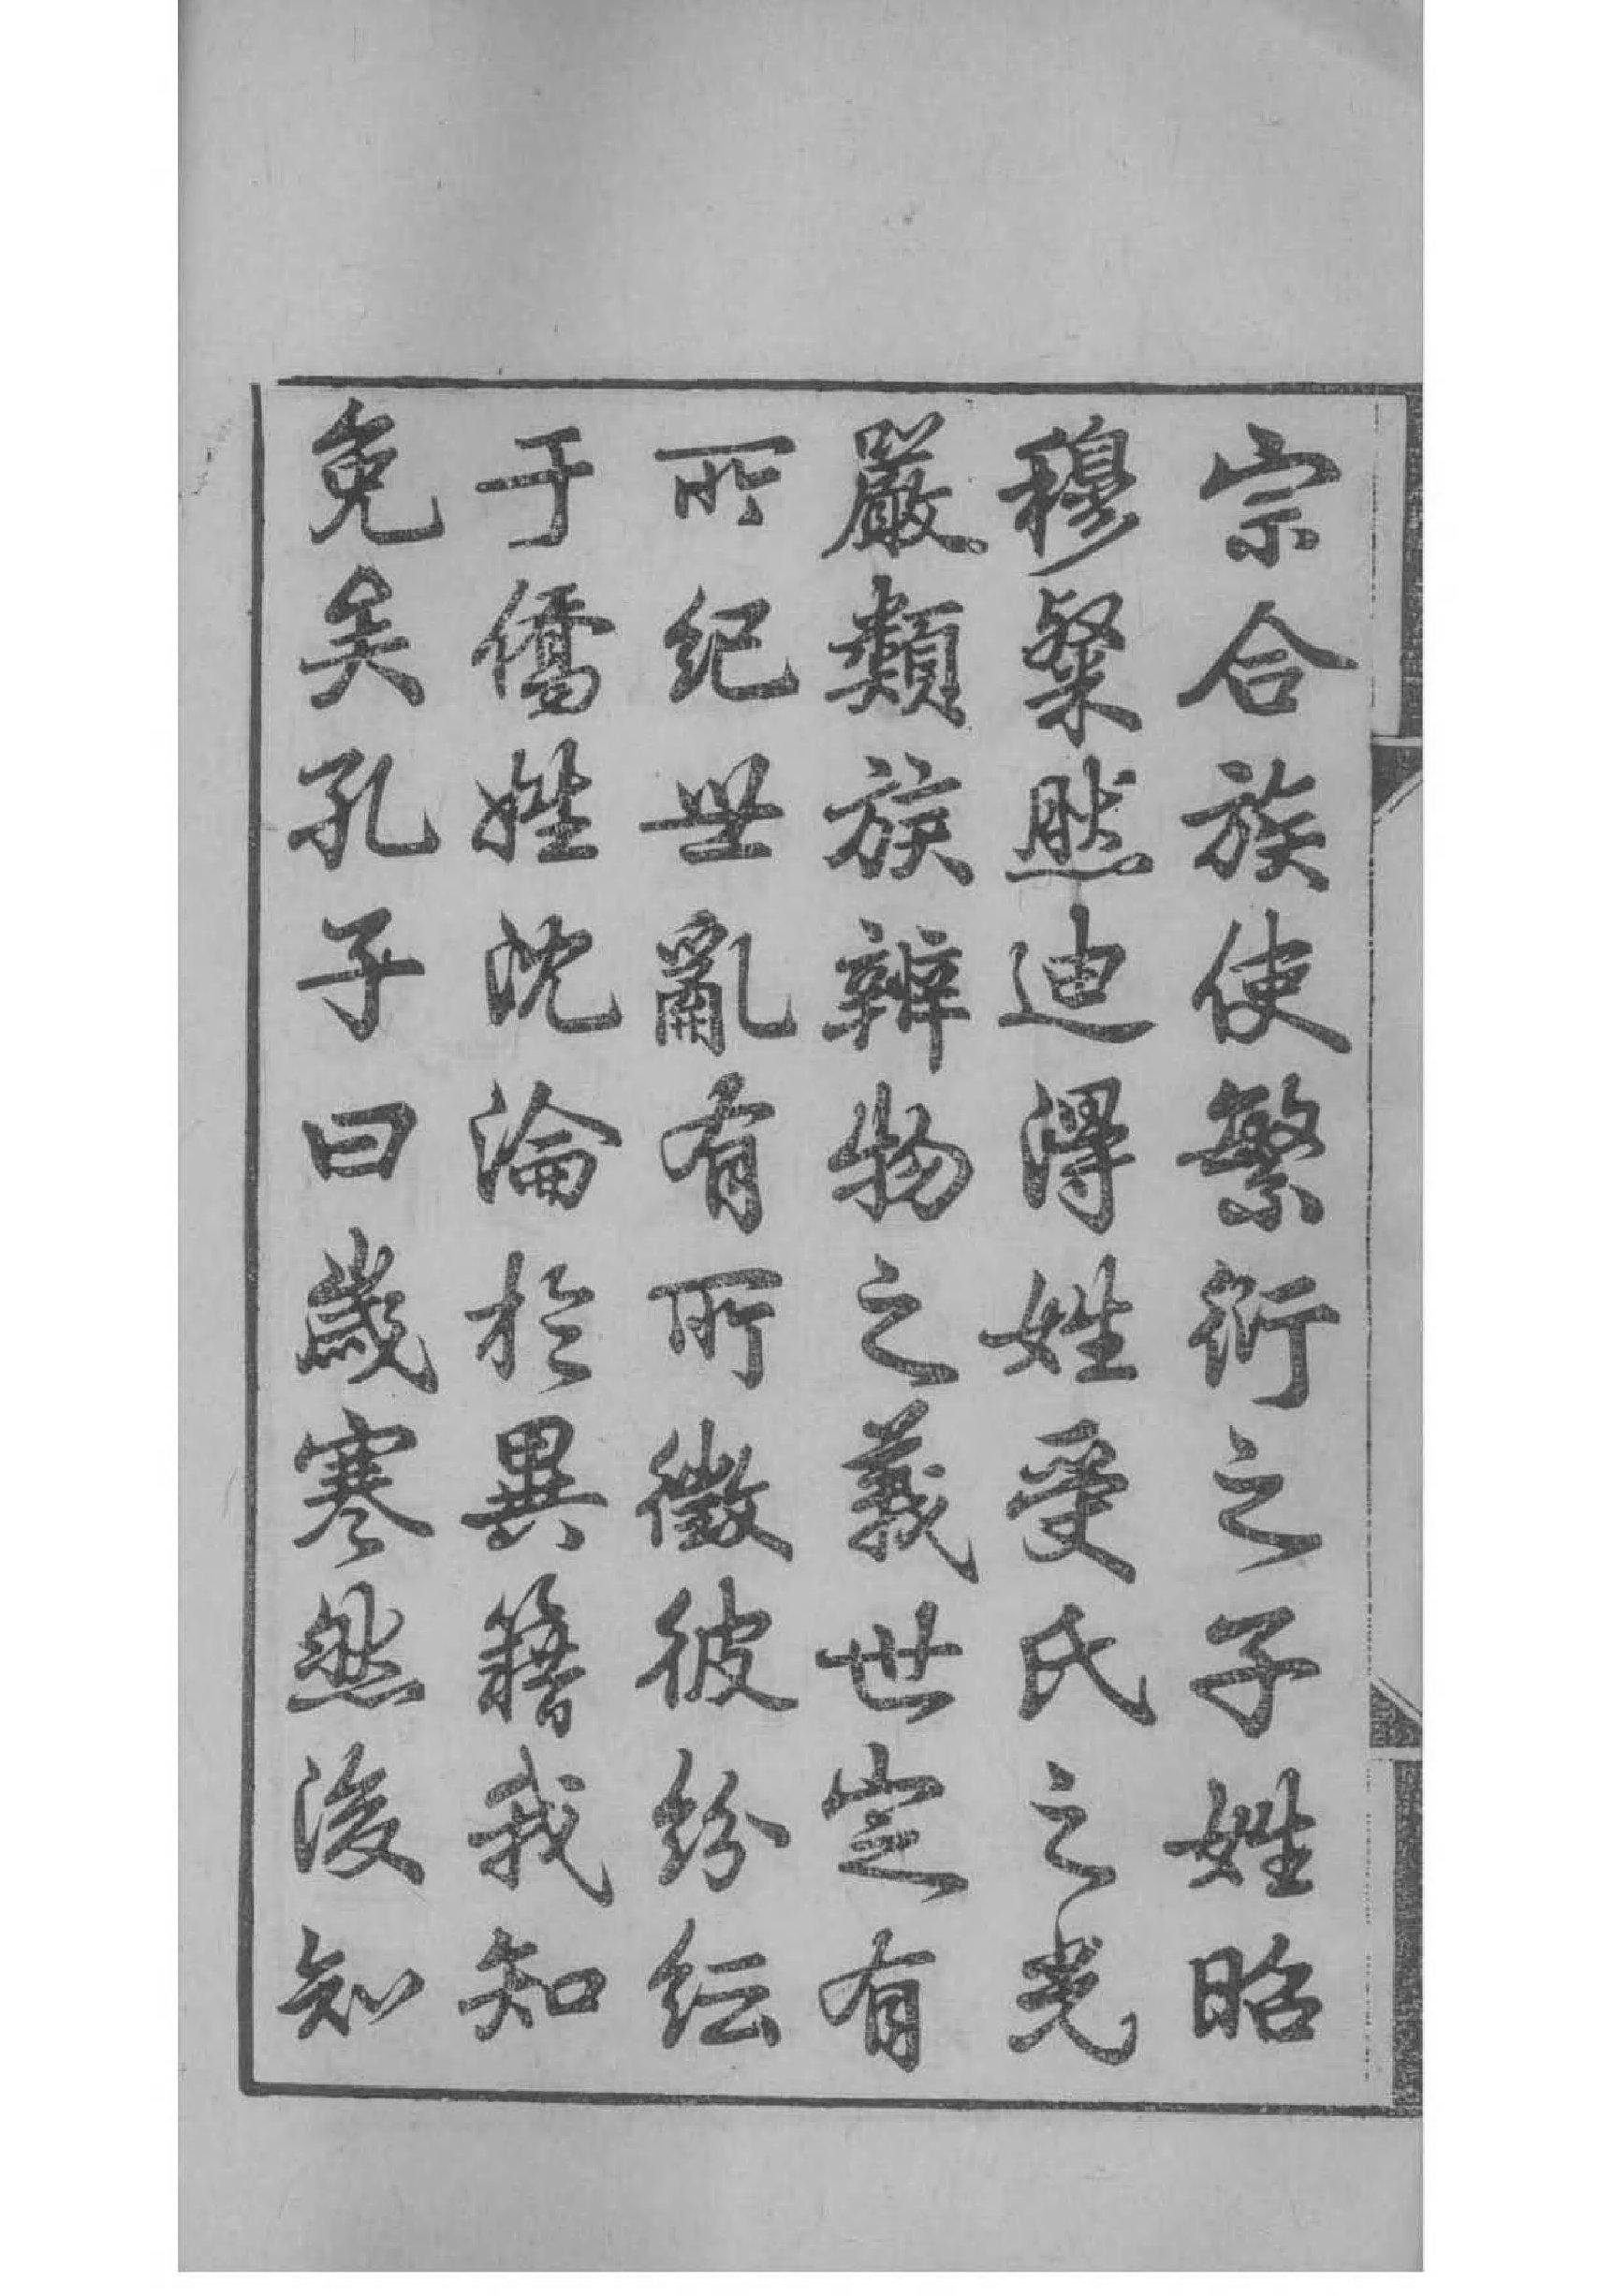 宗合族使繁衍之子姓昭
穆粲然迪得姓受氏之光
嚴類族辨物之義世定有
所紀世亂有所徵彼紛紜
于僑姓沈淪於異籍我知
免矣孔子曰歲寒然後知